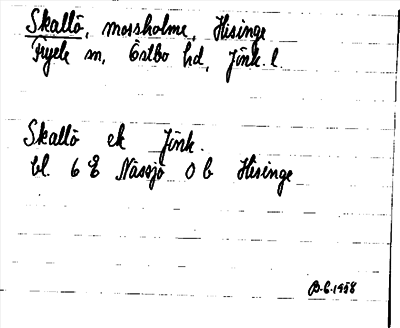 Skallö, mossholme, Hisinge
Fryele sn, Östbo hd, Jönk. l.
Skallö ek Jönk.
bl. 6 E Nässjö 0 b Hisinge
B.G. 1958